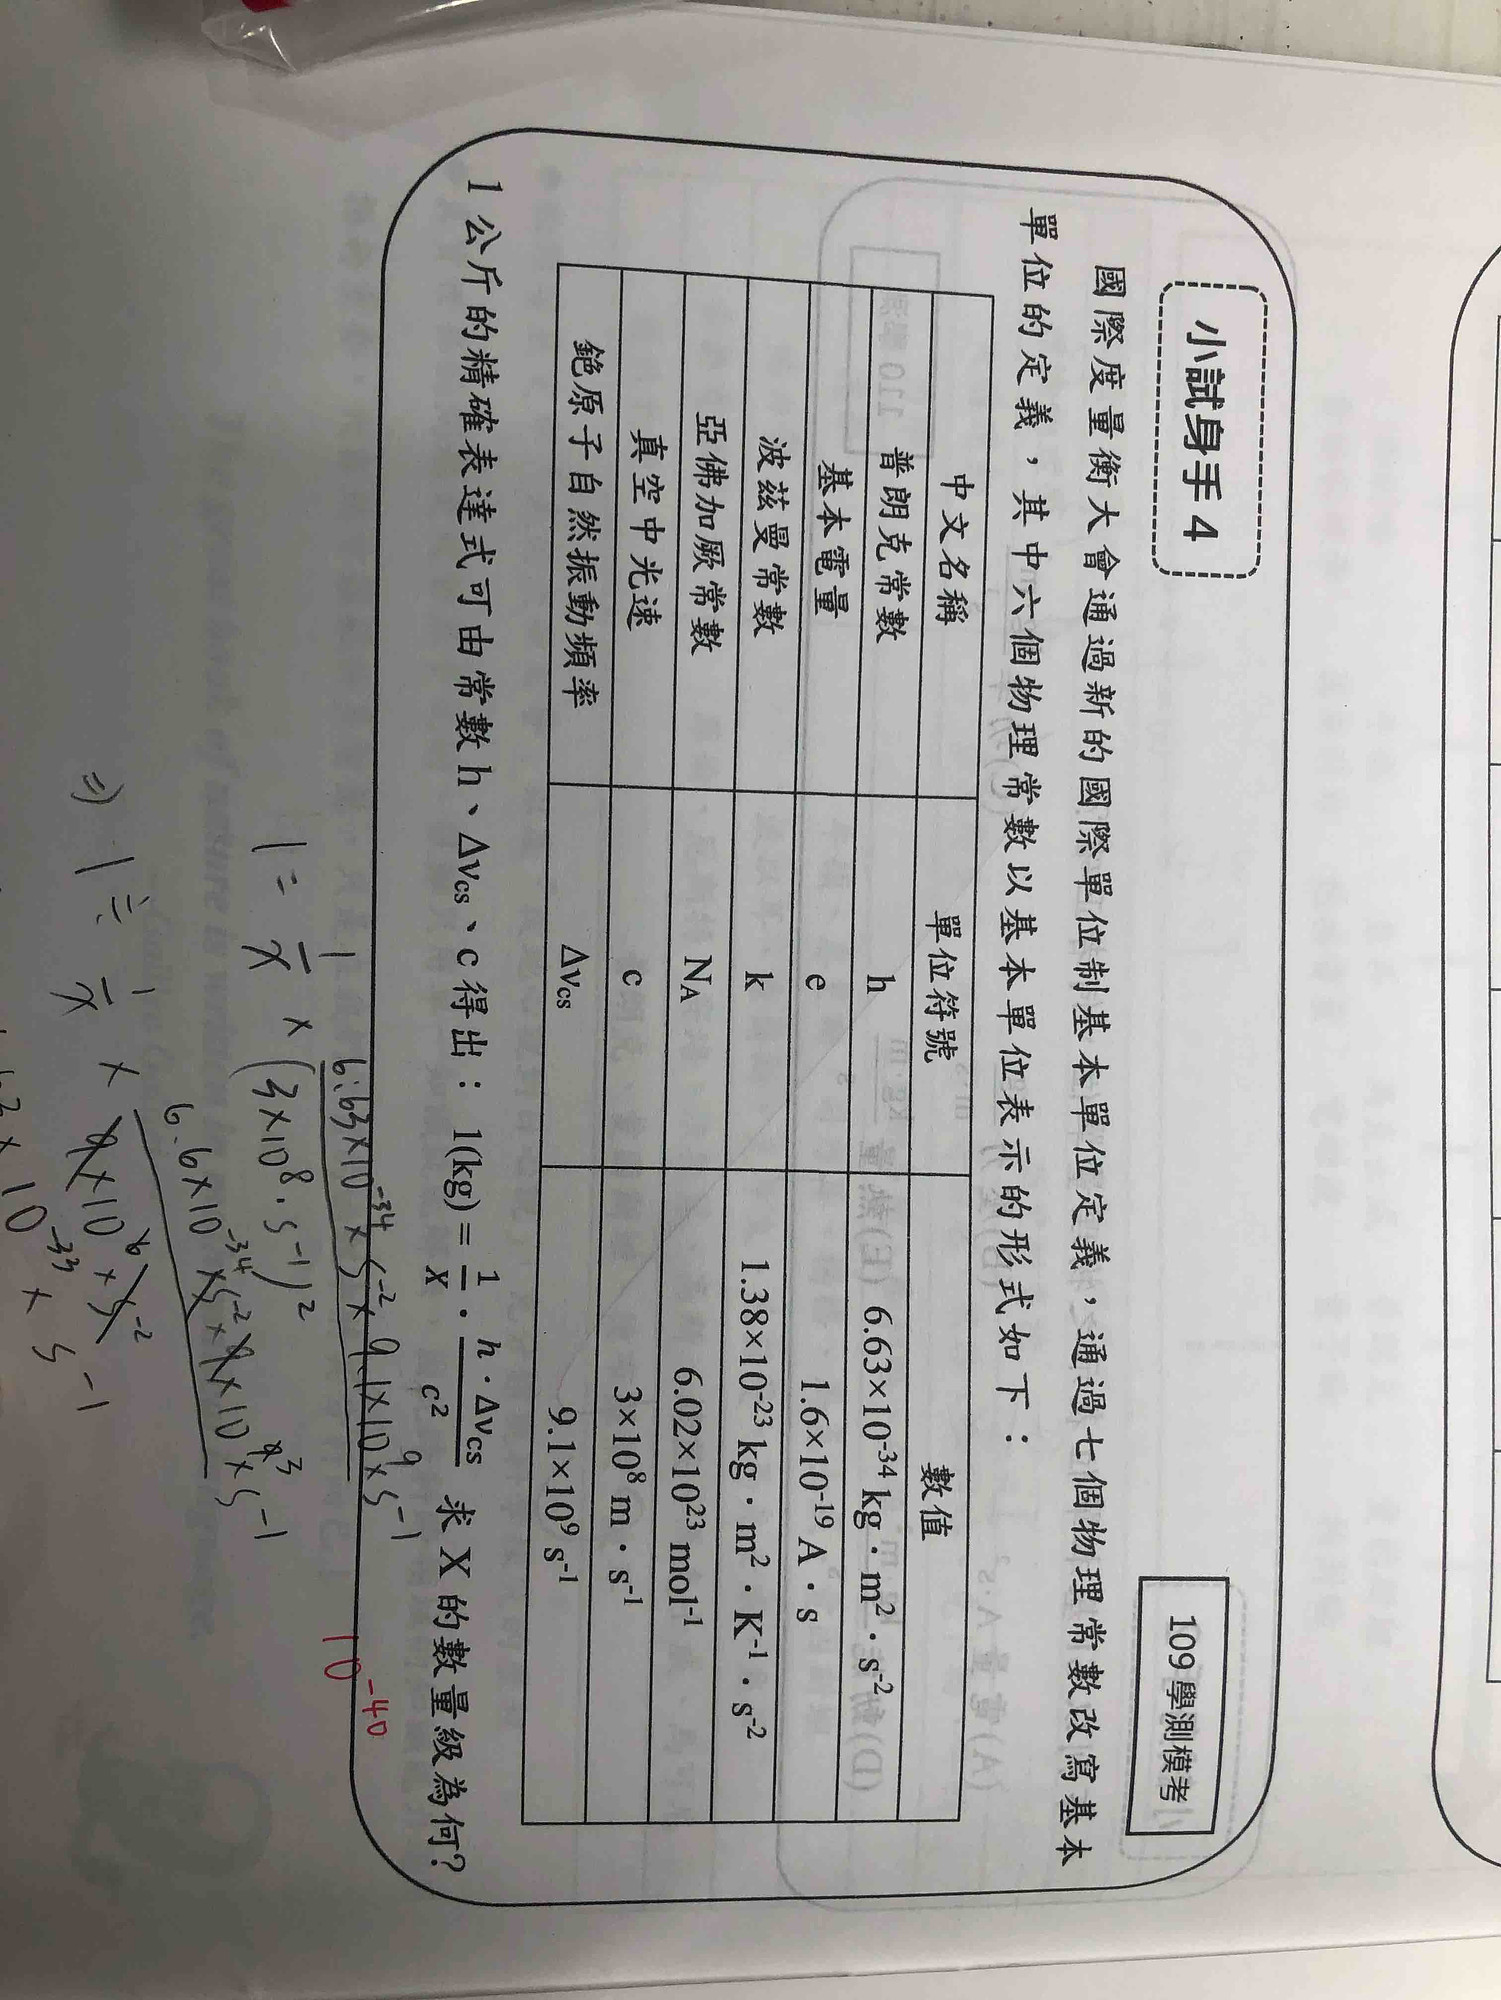 小試身手 4
109 學測模考
國際度量衡大會通過新的國際單位制基本單位定義，通過七個物理常數改寫基本
單位的定義，其中六個物理常數以基本單位表示的形式如下：
中文名稱 單位符號 數值
普朗克常數 h 6.63×10⁻³⁴ kg · m² · s⁻²
基本電量 e 1.6×10⁻¹⁹ A · s
波茲曼常數 k 1.38×10⁻²³ kg · m² · K⁻¹ · s⁻²
亞佛加厥常數 N_A 6.02×10²³ mol⁻¹
真空中光速 c 3×10⁸ m · s⁻¹
銫原子自然振動頻率 Δν_cs 9.1×10⁹ s⁻¹
1 公斤的精確表達式可由常數 h、Δν_cs、c 得出： 1(kg) = 1/X · h · Δν_cs / c² 求 X 的數量級為何?
10⁻⁴⁰
1 = 1/X × 6.63×10⁻³⁴ × s⁻² × 9.1×10⁹ × s⁻¹ / (3×10⁸ · s⁻¹)²
⇒ 1 ≒ 1/X × 6.6×10⁻³⁴